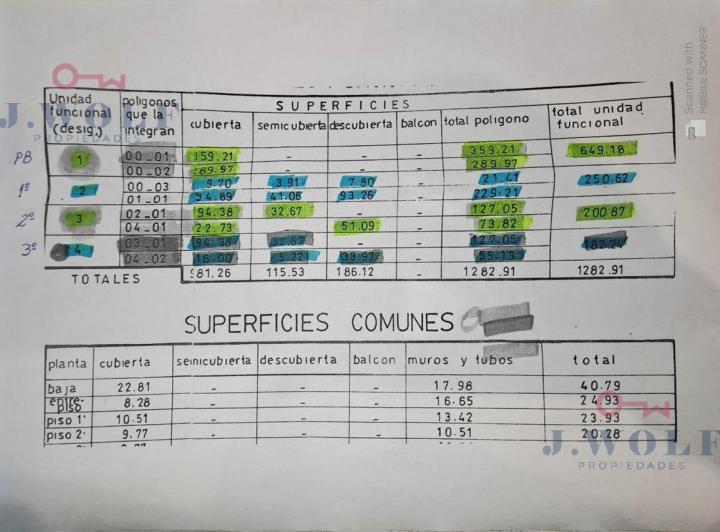 SUPERFICIES
Unidad funcional (desig.) poligonos que la integran cubierta semicubierta descubierta balcon total poligono total unidad funcional
PB 1 00_01 359.21 - - - 359.21 649.18
00_02 289.97 - - - 289.97
1º 2 00_03 9.70 3.91 7.80 - 21.41 250.62
01_01 94.89 41.06 93.26 - 229.21
2º 3 02_01 94.38 32.67 - - 127.05 200.87
04_01 22.73 - 51.09 - 73.82
3º 4 03_01 94.38 32.67 - - 127.05
04_02 16.00 5.22 33.97 - 55.19
TOTALES 981.26 115.53 186.12 - 1282.91 1282.91
SUPERFICIES COMUNES
planta cubierta semicubierta descubierta balcon muros y tubos total
baja 22.81 - - - 17.98 40.79
entre-piso 8.28 - - - 16.65 24.93
piso 1º 10.51 - - - 13.42 23.93
piso 2º 9.77 - - - 10.51 20.28
J.WOLF
PROPIEDADES
J.WOLF
PROPIEDADES
Scanned with
MOBILE SCANNER